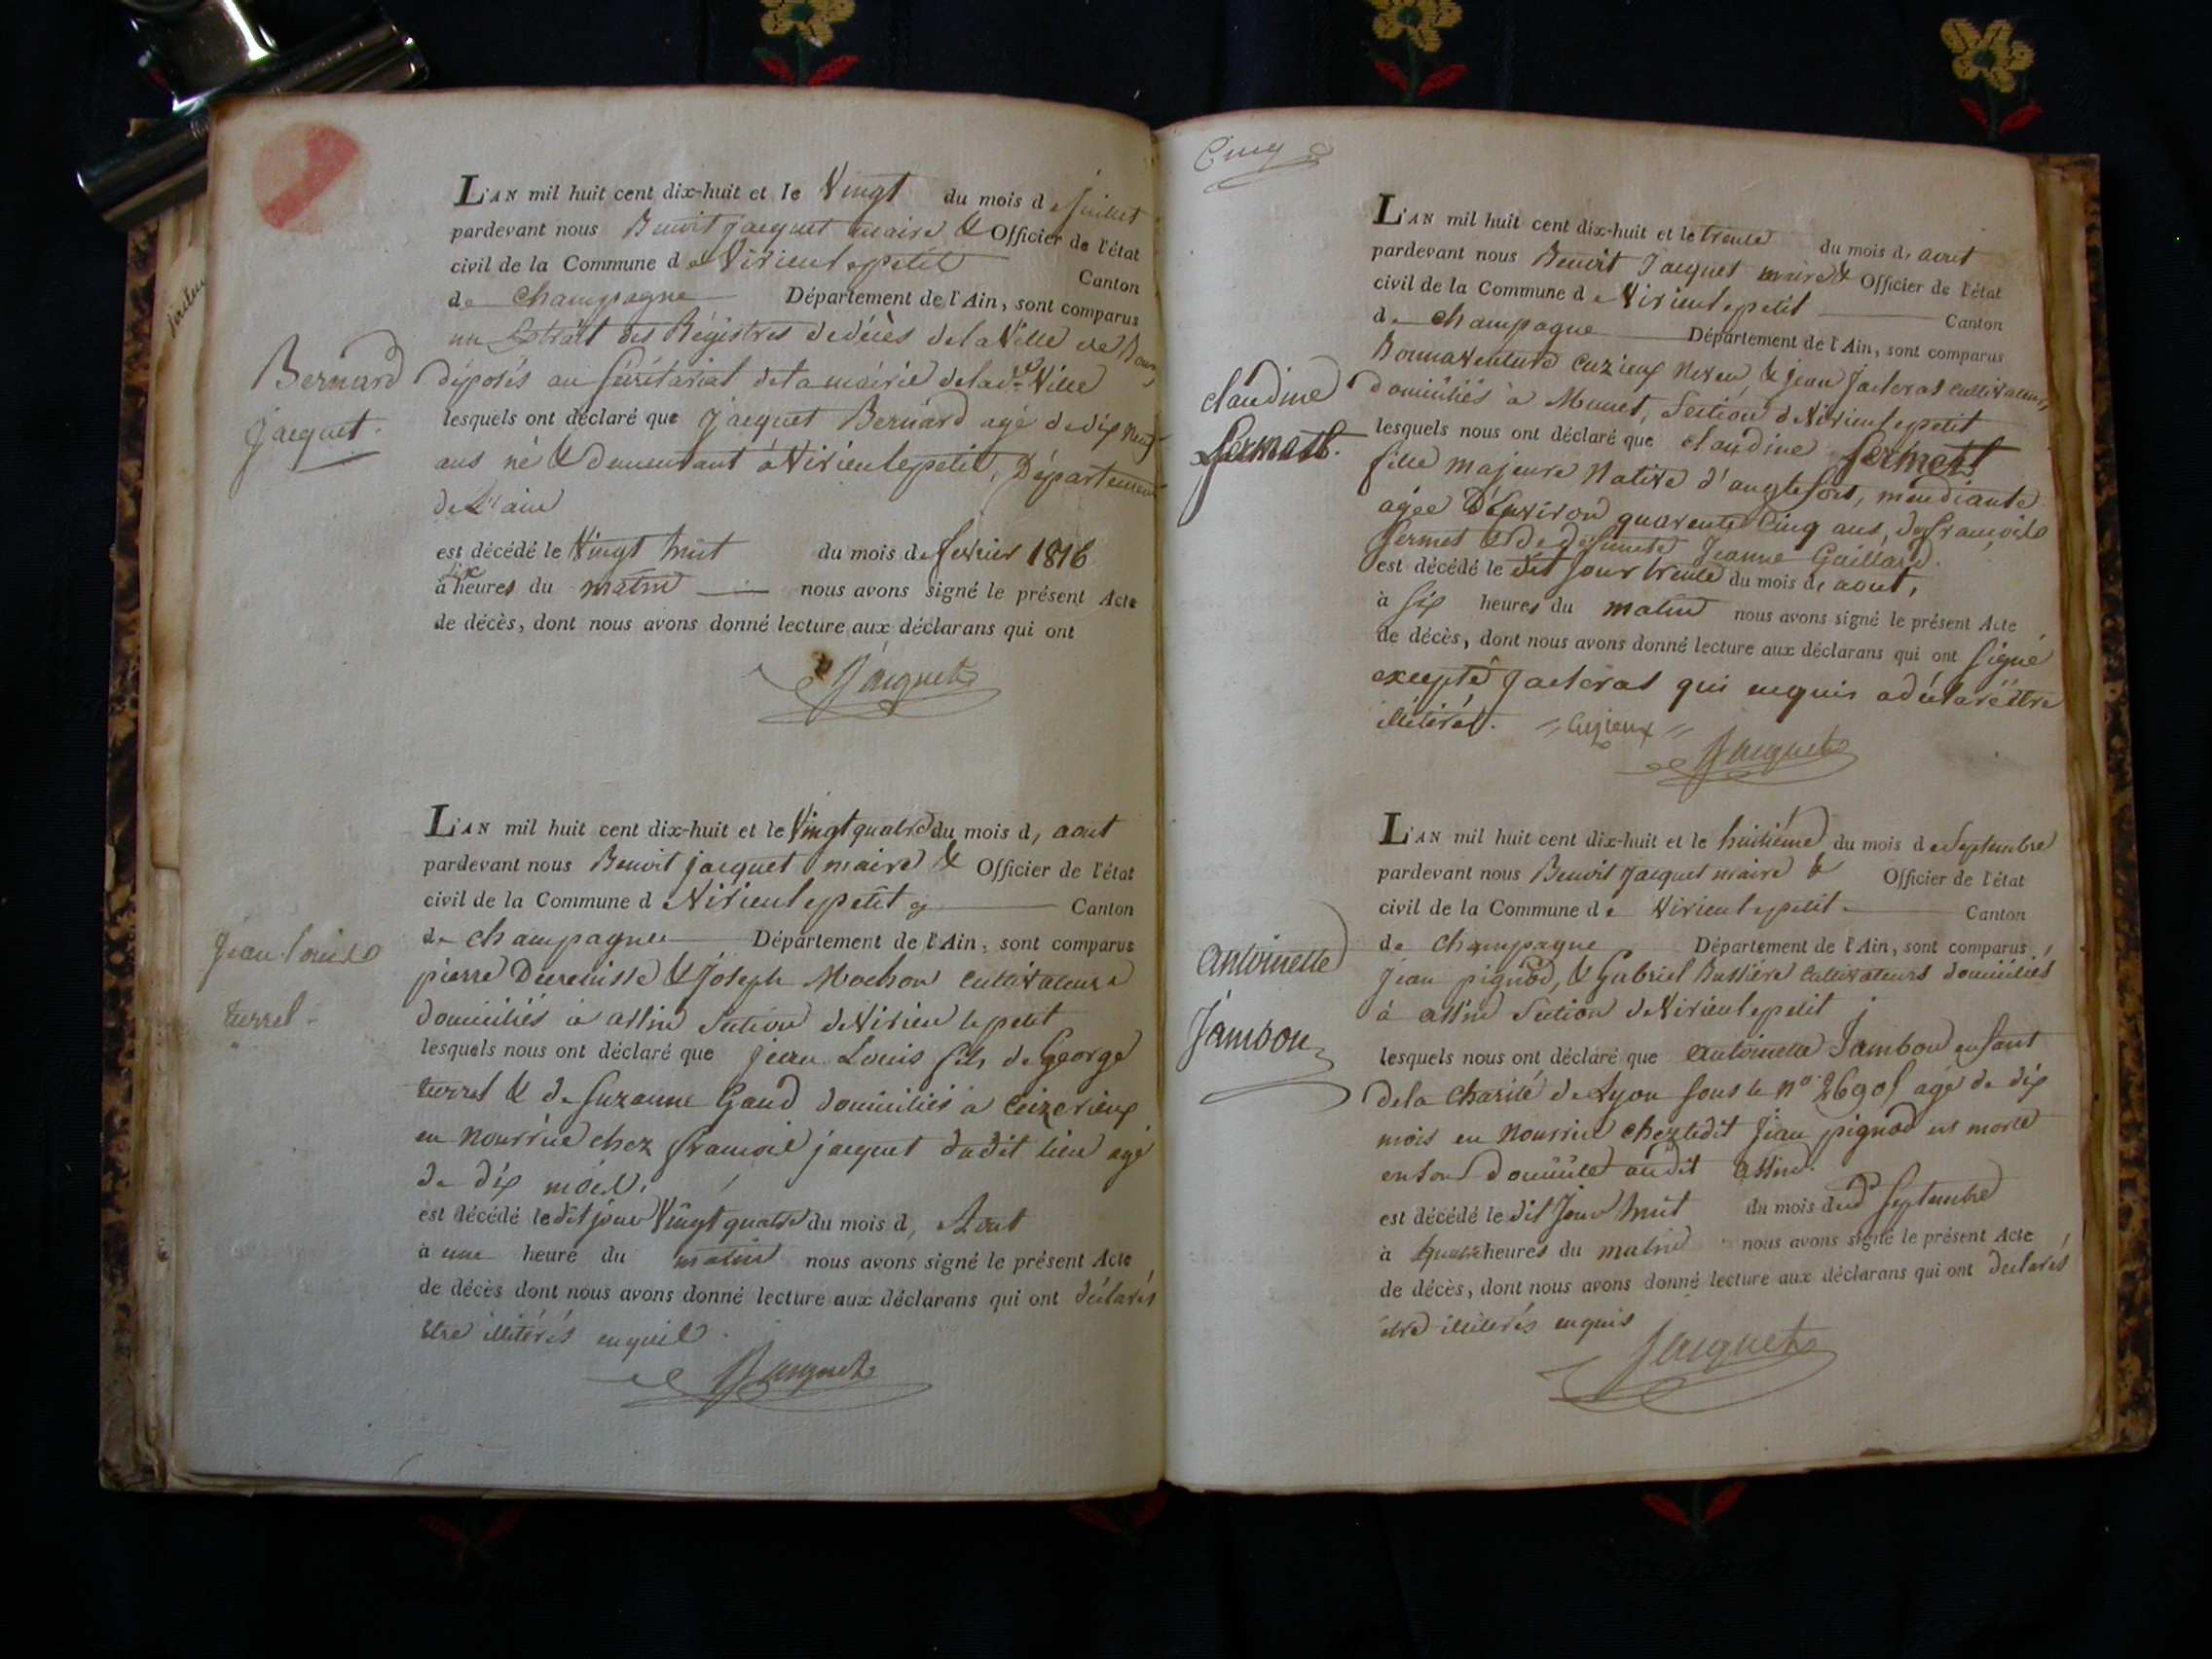 L'AN mil huit cent dix-huit et le Vingt du mois de Juillet
pardevant nous Benoit jacquet maire & Officier de l'état
civil de la Commune de Virieu le petit Canton
de Champagne Département de l'Ain, sont comparus
un Extrait des Régistres de décès de la Ville de
Bernard
déposés au sécrétariat de la mairie de lad.e Ville
Jacquet.
lesquels ont déclaré que Jacquet Bernard agé de dix neuf
ans né & demeurant à Virieu le petit, Département
de l'ain
est décédé le Vingt huit du mois de fevrier 1816
dix
à heures du matin nous avons signé le présent Acte
de décès, dont nous avons donné lecture aux déclarans qui ont
Jacquet
L'AN mil huit cent dix-huit et le Vingt quatre du mois d, aout
pardevant nous Benoit jacquet maire & Officier de l'état
civil de la Commune d Virieu le petit Canton
de champagne Département de l'Ain, sont comparus
Jean Louis
pierre & Joseph Mochon cultivateurs
turrel
domiciliés à assin Section de Virieu le petit
lesquels nous ont déclaré que jean Louis fils de George
turrel & de Suzanne Gaud domiciliés a
en nourrice chez francois jacquet dudit lieu agé
de dix mois.
est décédé le dit jour Vingt quatre du mois d, Aout
à une heure du matin nous avons signé le présent Acte
de décès dont nous avons donné lecture aux déclarans qui ont déclarés
etre illitérés enquis.
Jacquet
Cinq
L'AN mil huit cent dix-huit et le trente du mois d, aout
pardevant nous Benoit Jacquet maire & Officier de l'état
civil de la Commune de Virieu le petit Canton
de champagne Département de l'Ain, sont comparus
Bonnaventure cuzieux neveu, & jean cultivateurs,
claudine
domiciliés à Munet, Section de Virieu le petit
fermet.
lesquels nous ont déclaré que claudine fermet
fille majeure Native d'anglefort, mendiante
agée d'Environ quarente Cinq ans, de francois
fermet & de defunte Jeanne Gaillard.
est décédé le dit jour trente du mois d, aout,
à six heures du matin nous avons signé le présent Acte
de décès, dont nous avons donné lecture aux déclarans qui ont signé
excepté qui enquis a déclaré être
illitéré. Cuzieux
Jacquet
L'AN mil huit cent dix-huit et le huitième du mois de Septembre
pardevant nous Benoit Jacquet maire & Officier de l'état
civil de la Commune de Virieu le petit Canton
de Champagne Département de l'Ain, sont comparus
Antoinette
jean pignod, & Gabriel Bussière cultivateurs domiciliés
à assin Section de Virieu le petit
Jambon
lesquels nous ont déclaré que antoinette Jambon enfant
de la charité de Lyon sous le nº agé de dix
mois en nourrice chez ledit jean pignod est morte
en son domicile audit assin.
est décédé le dit jour huit du mois dud Septembre
à quatre heures du matin nous avons signé le présent Acte
de décès, dont nous avons donné lecture aux déclarans qui ont declarés
etre illitérés enquis
Jacquet